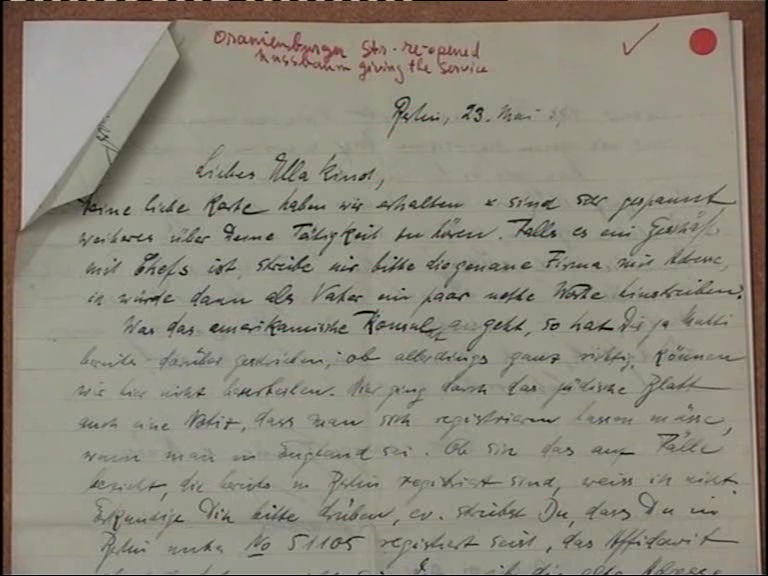 Oranienburger Str. re-opened
Nussbaum giving the Service
Berlin, 23. Mai 39.
Liebes Ella Kind,
Deine liebe Karte haben wir erhalten & sind sehr gespannt
weiteres über Deine Tätigkeit zu hören. Falls es ein Geschäft
mit Chefs ist, schreibe mir bitte die genaue Firma mit Adresse,
ich würde dann als Vater ein paar nette Worte hinschreiben.
Was das amerikanische Konsulat angeht, so hat Dir ja Mutti
bereits darüber geschrieben; ob allerdings ganz richtig, können
wir hier nicht beurteilen. Hier ging durch das jüdische Blatt
auch eine Notiz, dass man sich registrieren lassen müsse,
wenn man in England sei. Ob sich das auf Fälle
bezieht, die bereits in Berlin registriert sind, weiss ich nicht.
Erkundige Dich bitte drüben, ev. schreibst Du, dass Du in
Berlin unter No 51105 registriert seist, das Affidavit
die alte Adresse